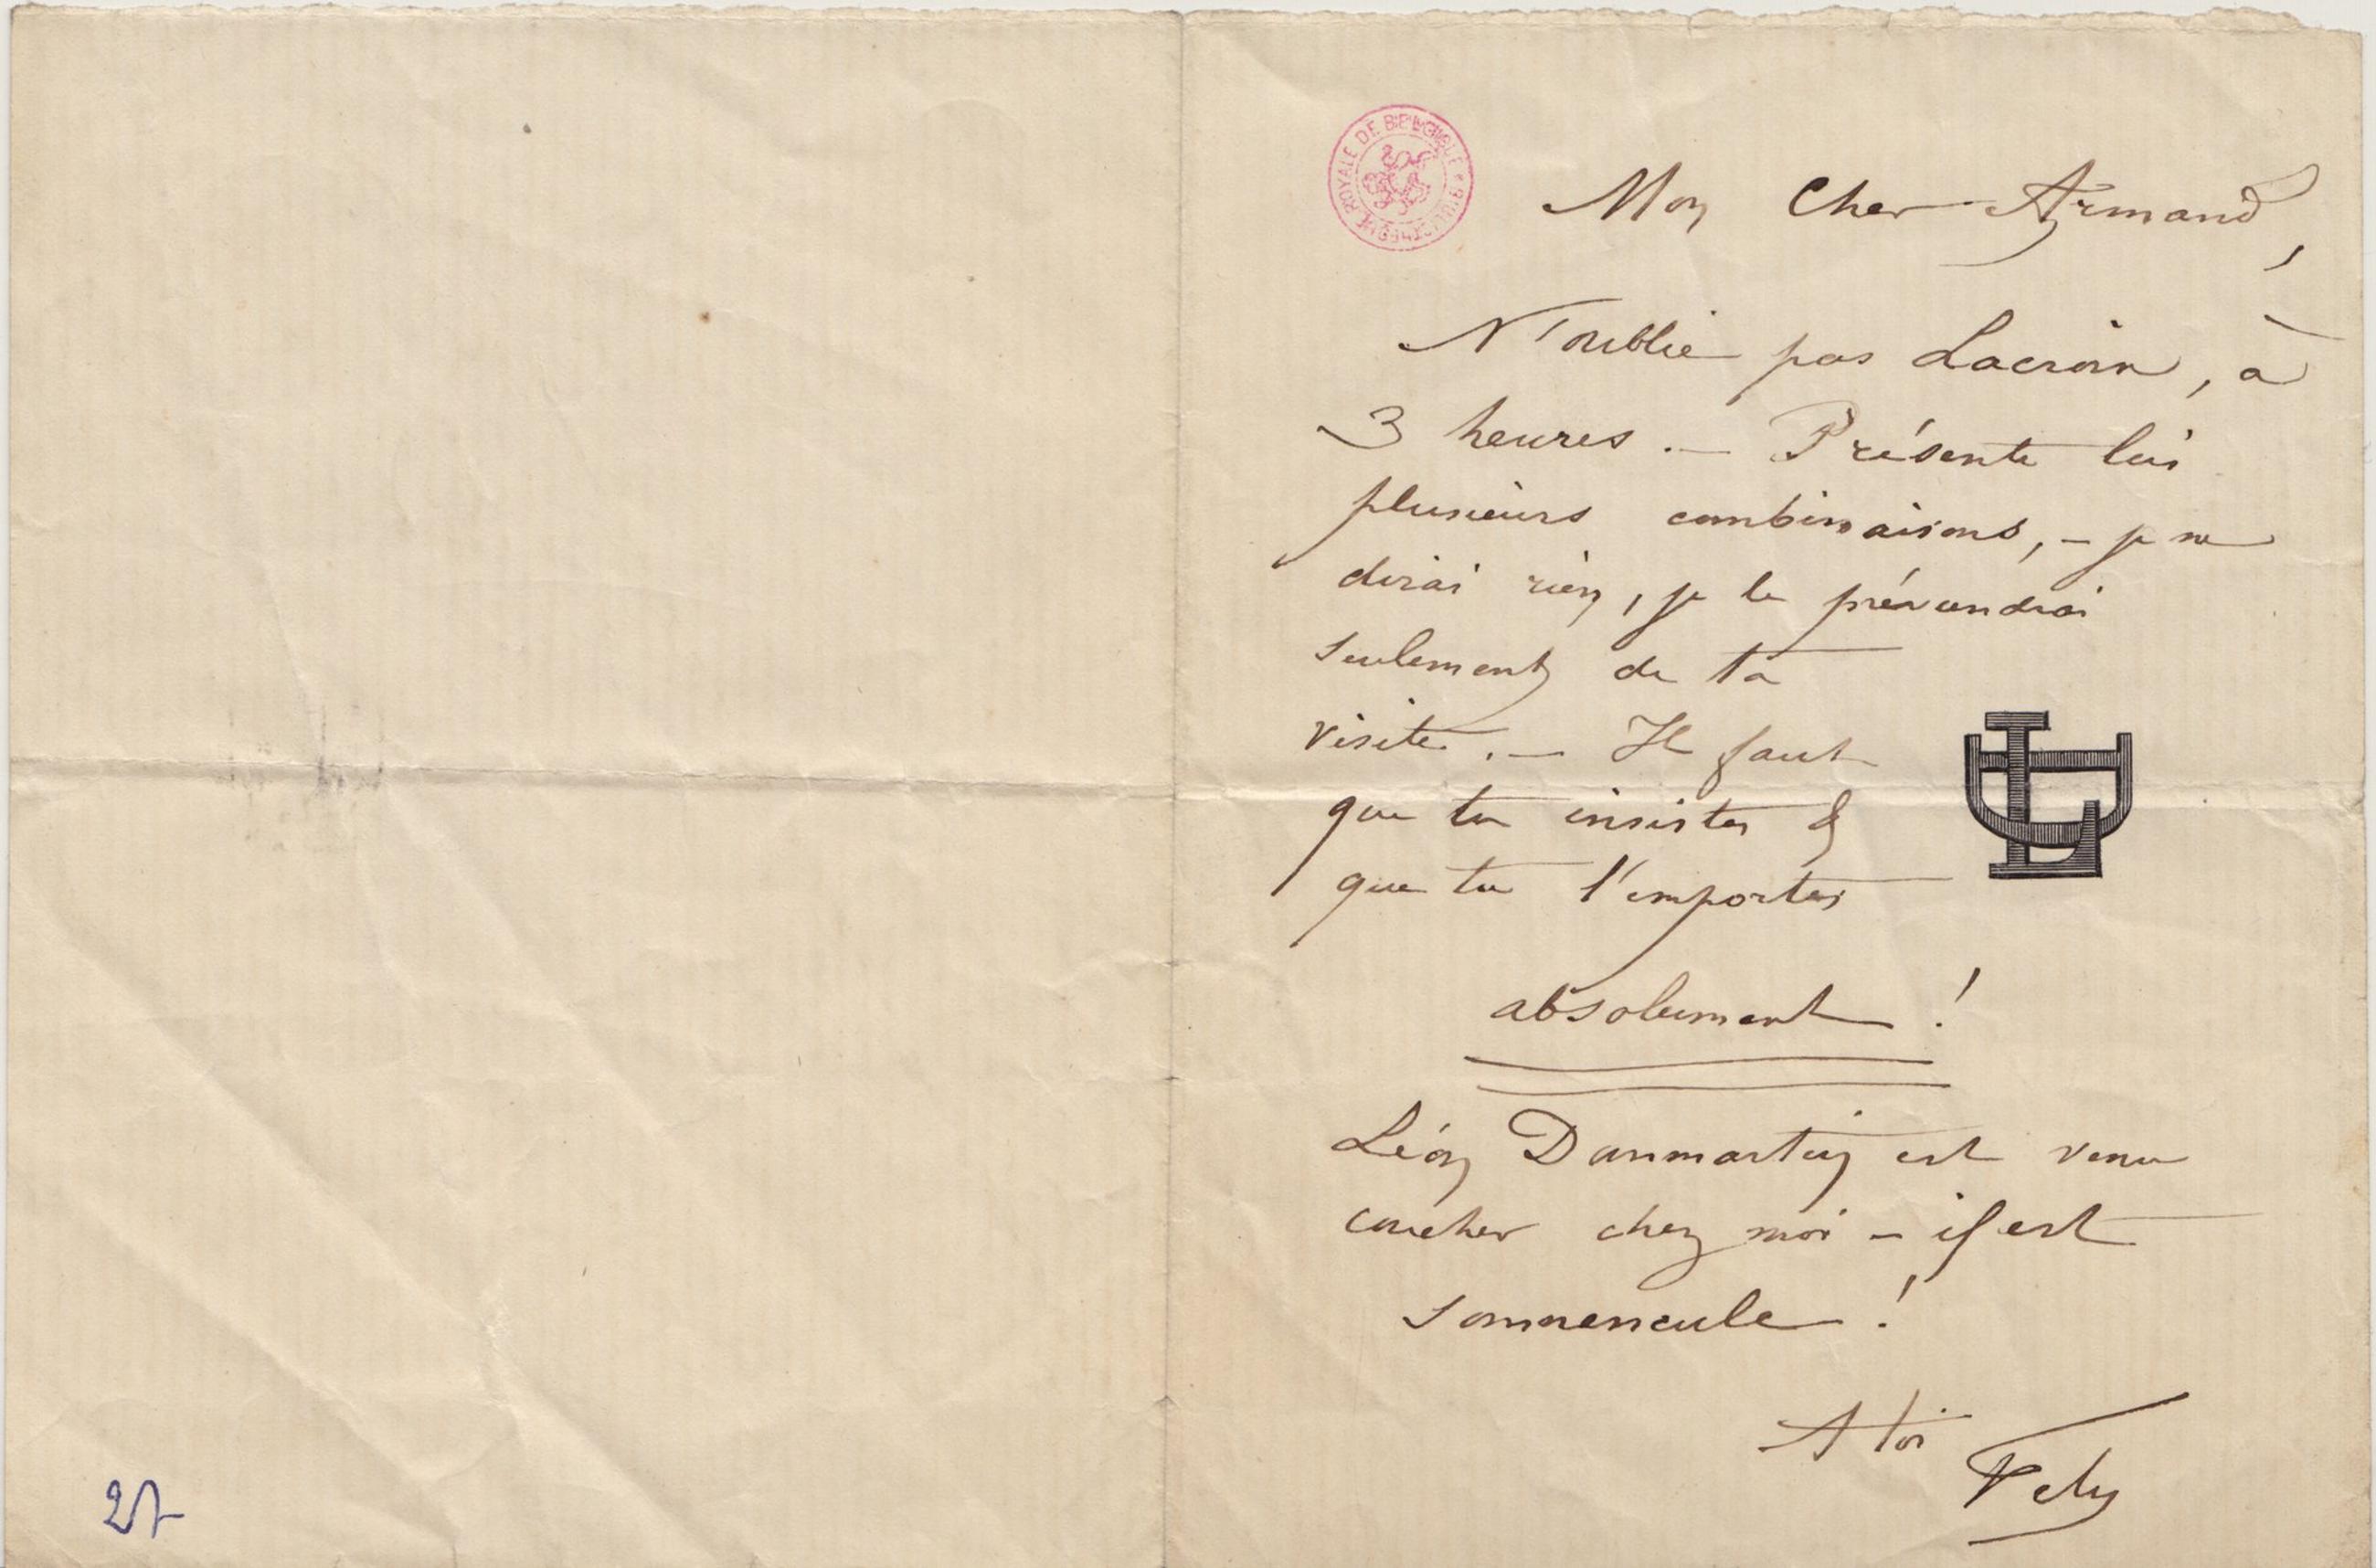 BIBLIOTHÈQUE ROYALE DE BELGIQUE
Mon Cher Armand,
N'oublie pas Lacroix, à
3 heures. — Présente lui
plusieurs combinaisons, — je ne
dirai rien, je le préviendrai
seulement de ta
visite. — Il faut
que tu insistes &
que tu l'emportes
absolument !
Léon Donmartin est venu
coucher chez moi — il est
!
A toi
Fély
27